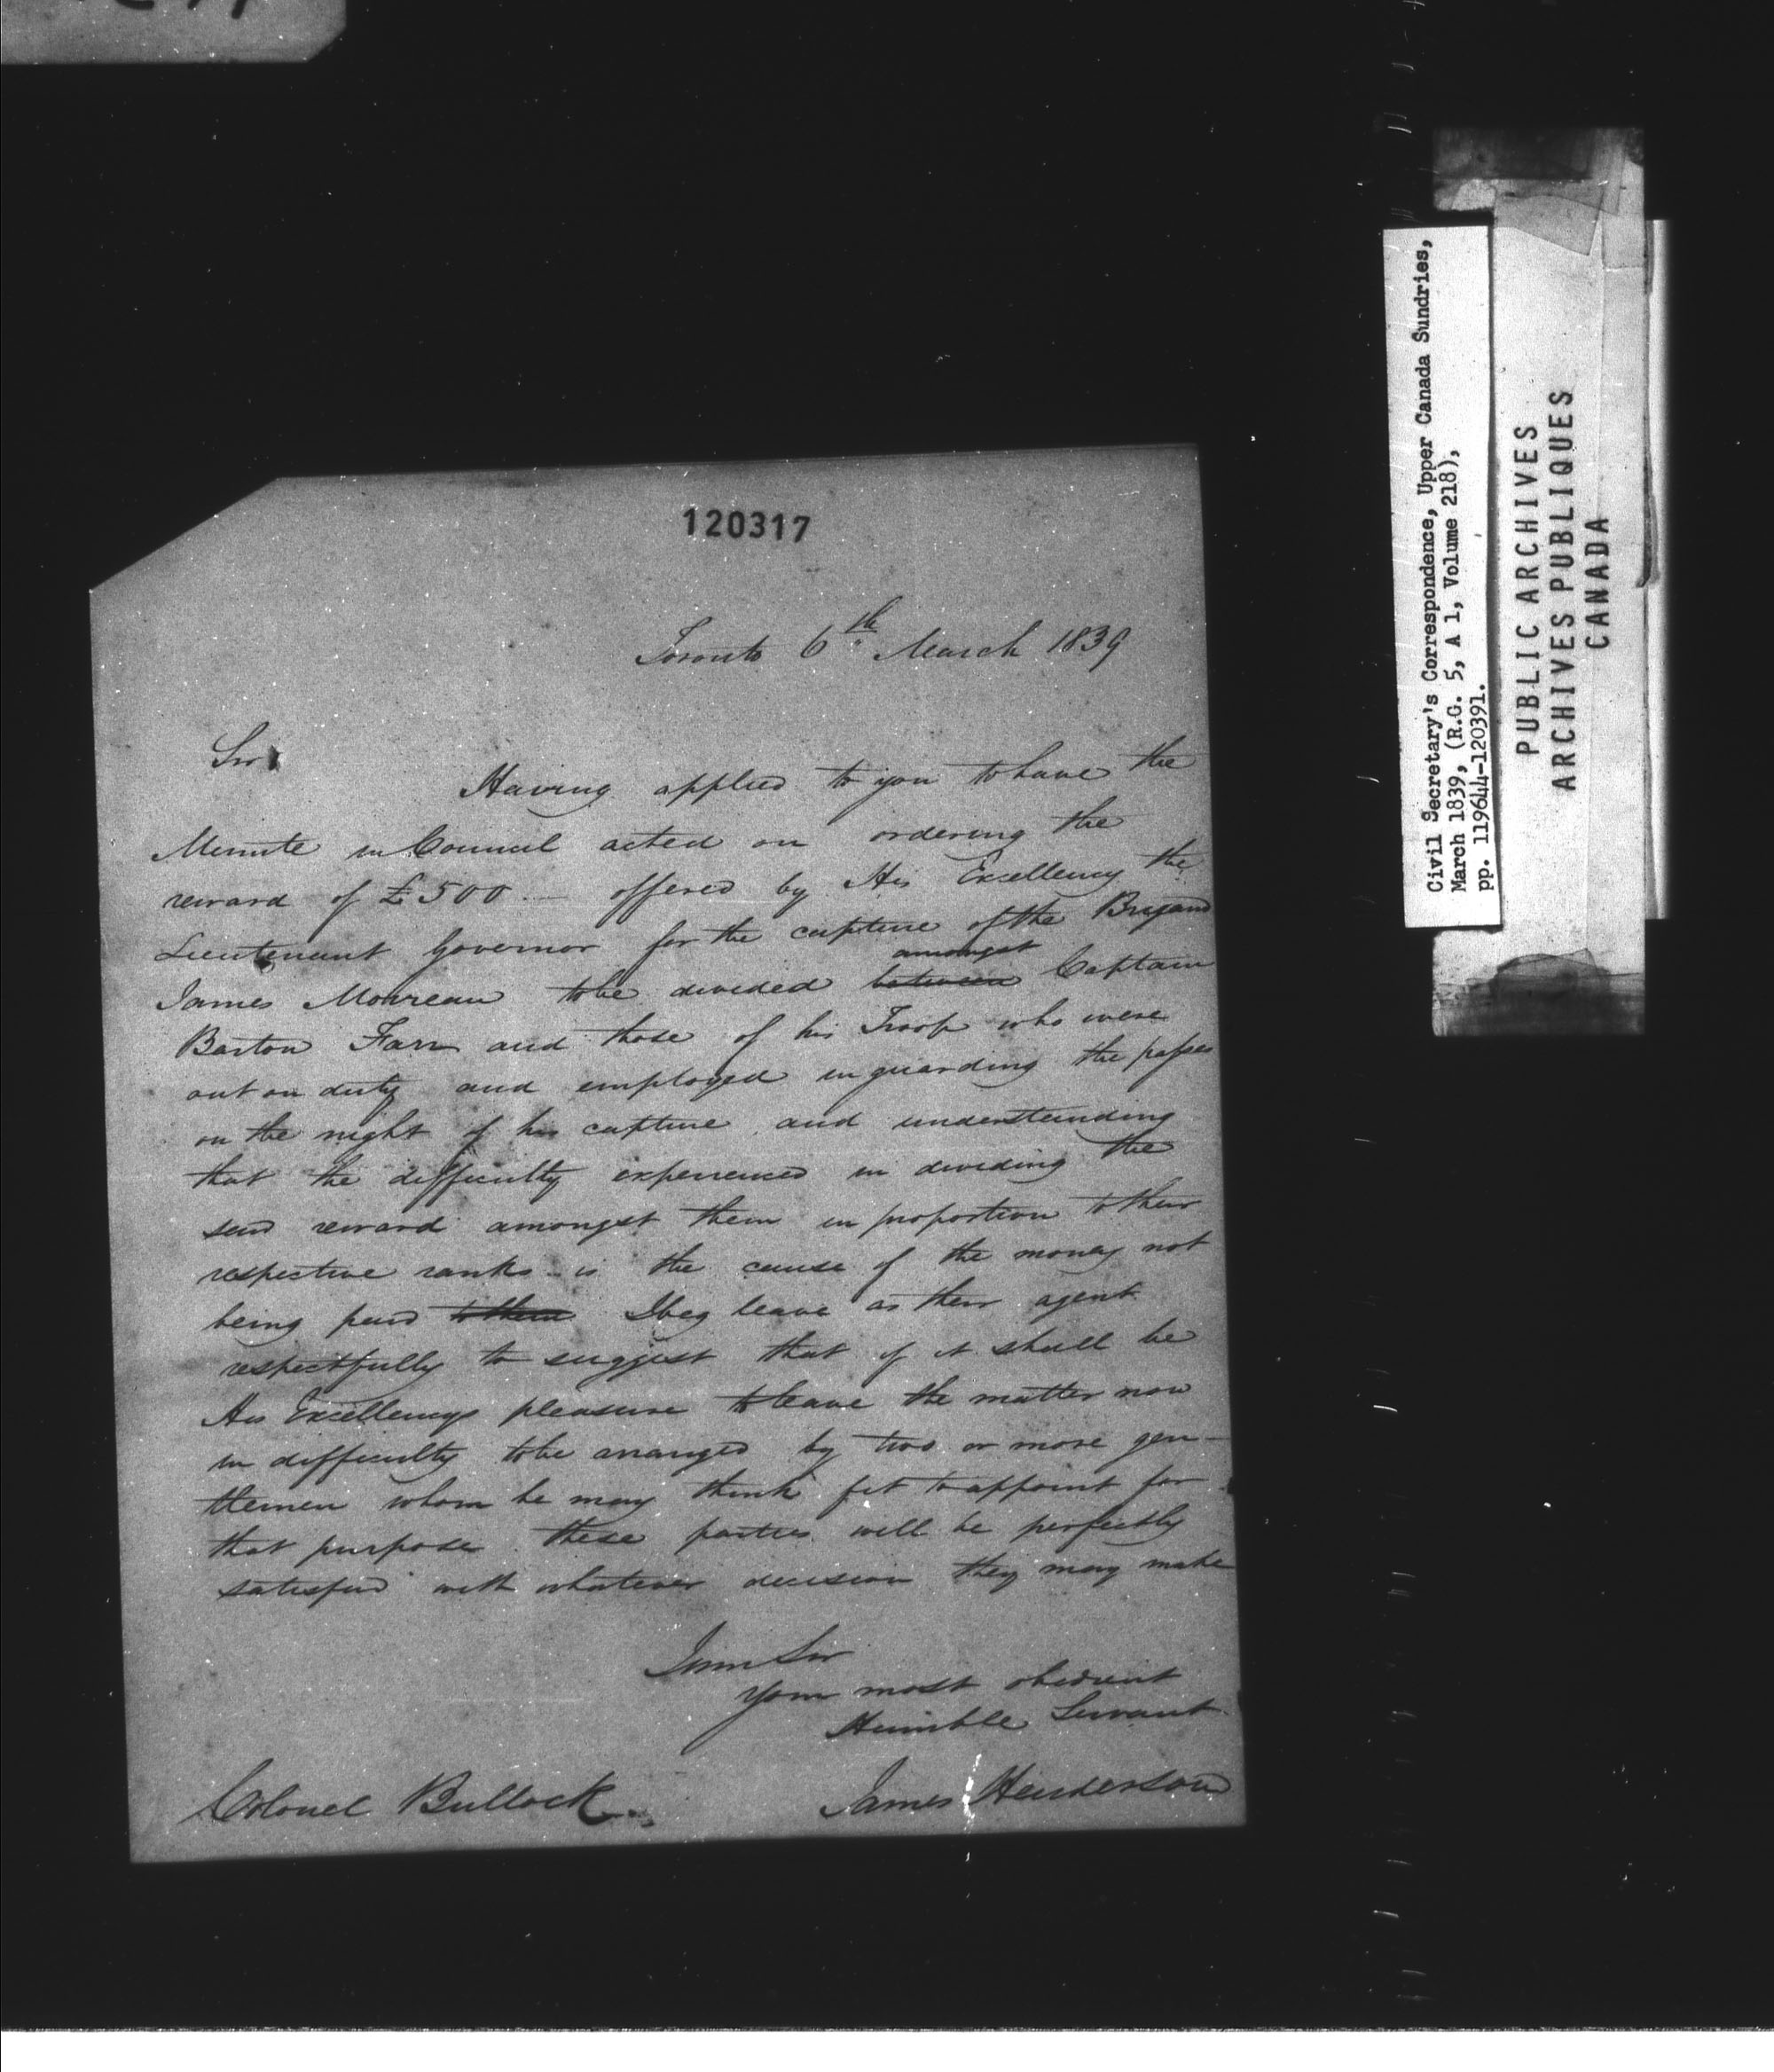 120317
Toronto 6th March 1839
Sir
Having applied to you to have the
Minute in Council acted on ordering the
reward of £500 — offered by His Excellency the
Lieutenant Governor for the capture of the Brigand
amongst
James Morreau to be divided between Captain
Barton Farr and those of his Troop who were
out on duty and employed in guarding the passes
on the night of his capture and understanding
that the difficulty experienced in dividing the
said reward amongst them in proportion to their
respective ranks is the cause of the money not
being paid to them I beg leave as their agent
respectfully to suggest that if it shall be
His Excellencys pleasure to leave the matter now
in difficulty to be arranged by two or more gen-
tlemen whom he may think fit to appoint for
that purpose these parties will be perfectly
satisfied with whatever decision they may make
I am Sir
Your most obedient
Humble Servant
James Henderson
Colonel Bullock
Civil Secretary's Correspondence, Upper Canada Sundries,
March 1839, (R.G. 5, A 1, Volume 218),
pp. 119644-120391.
PUBLIC ARCHIVES
ARCHIVES PUBLIQUES
CANADA